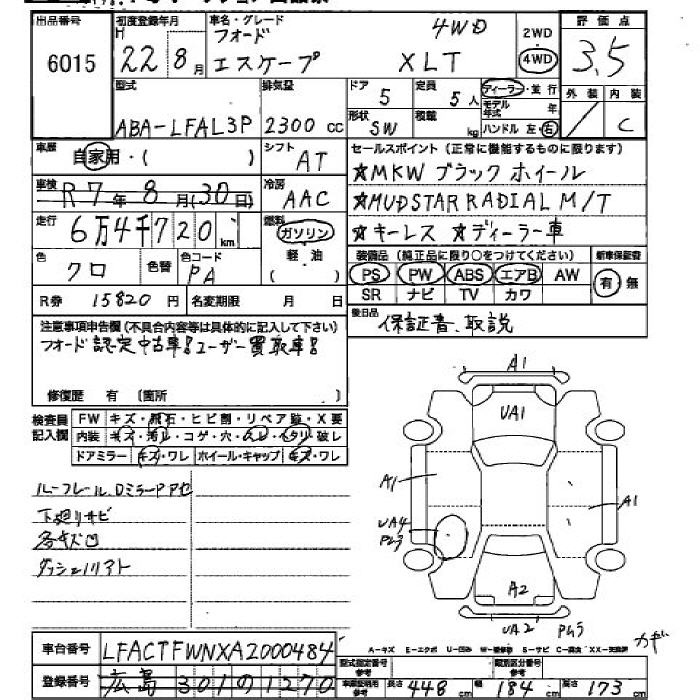 出品番号 6015
初度登録年月 H 22年 8月
車名・グレード フォード エスケープ 4WD XLT
2WD 4WD
評価点 3.5
外装 / 内装 C
型式 ABA-LFAL3P
排気量 2300 cc
ドア 5 形状 SW
定員 5人 積載 kg
ディーラー・並行
モデル年式 年
ハンドル 左・右
車歴 自家用・( )
シフト AT
セールスポイント(正常に機能するものに限ります)
☆MKW ブラック ホイール
☆MUDSTAR RADIAL M/T
☆キーレス ☆ディーラー車
車検 R7年8月(30日)
冷房 AAC
走行 6万4千720km
燃料 ガソリン 軽油 ( )
色 クロ 色替 色コード PA
装備品(純正品に限り○をつけてください)
PS PW ABS エアB AW
SR ナビ TV カワ
新車保証書 有・無
R券 15820円 名変期限 月 日
後日品 保証書、取説
注意事項申告欄(不具合内容等は具体的に記入して下さい)
フォード認定中古車!ユーザー買取車!
修復歴 有(箇所 )
検査員記入欄
FW キズ・飛石・ヒビ割・リペア跡・X要
内装 キズ・汚レ・コゲ・穴・ムレ・ヘタリ・破レ
ドアミラー キズ・ワレ ホイール・キャップ キズ・ワレ
ルーフレール、DミラーPアセ
下廻りサビ
各キズ凹
A1
UA1
A1
A1
UA4
A2
UA2
A-キズ E-エクボ U-凹み W-補修跡 S-サビ C-腐食
車台番号 LFACTFWNXA2000484
登録番号 広島 301 の 1270
型式指定番号 参考
類別区分番号 参考
車庫証明用 参考 長さ 448cm 幅 184cm 高さ 173cm